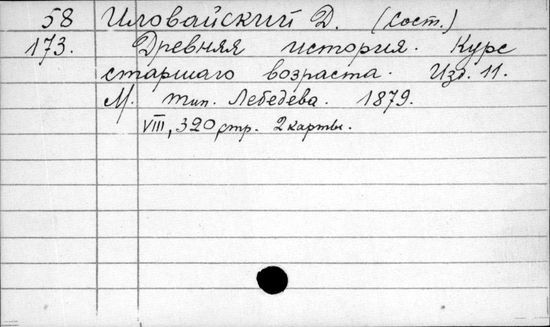 58 Иловайский Д. (сост.)
173. Древняя история. Курс
старшаго возраста. Изд. 11.
М. тип. Лебедева. 1879.
VIII, 320 стр. 2 карты.